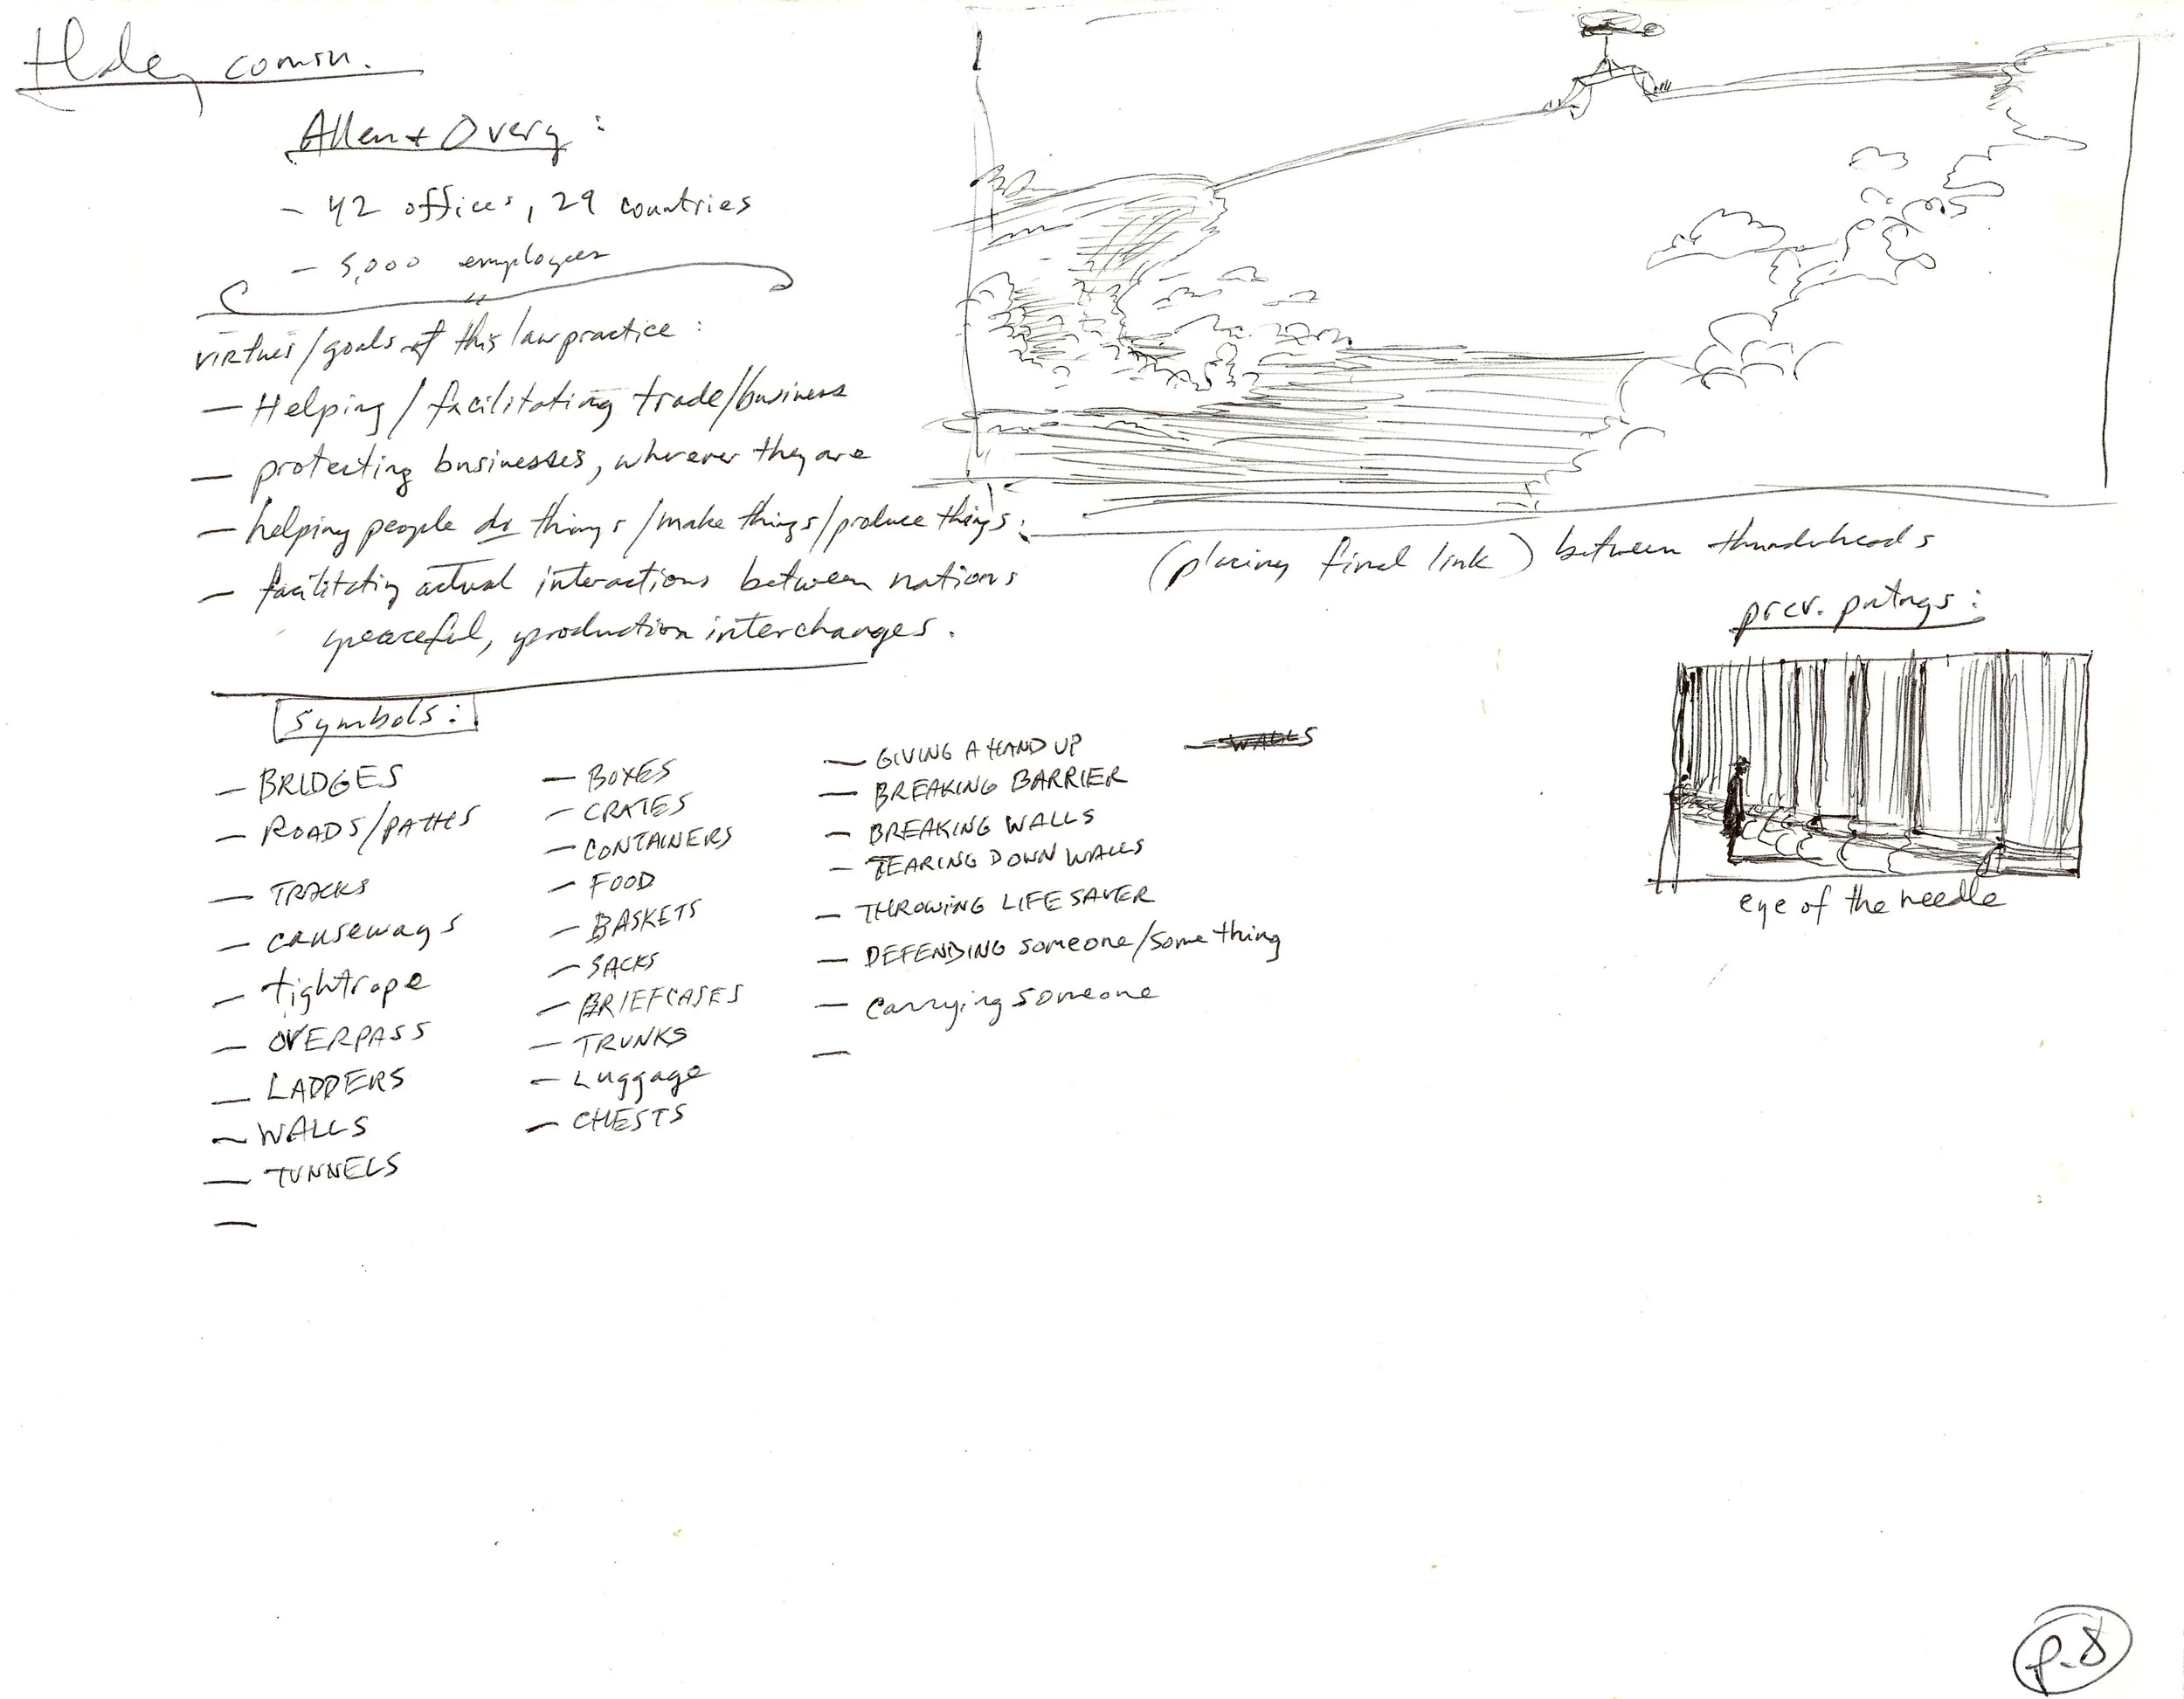 comm.
Allen + Overy :
- 42 offices, 29 countries
- 5,000 employees
virtues/goals of this law practice :
- Helping / facilitating trade/business
- protecting businesses, wherever they are
- helping people do things/make things/produce things:
- facilitating actual interactions between nations
peaceful, production interchanges.
(placing final link) between thunderheads
prev. pntngs :
eye of the needle
symbols :
- BRIDGES
- ROADS/PATHS
- TRACKS
- causeways
- tightrope
- OVERPASS
- LADDERS
- WALLS
- TUNNELS
-
- BOXES
- CRATES
- CONTAINERS
- FOOD
- BASKETS
- SACKS
- BRIEFCASES
- TRUNKS
- Luggage
- CHESTS
- GIVING A HAND UP
- BREAKING BARRIER
- BREAKING WALLS
- TEARING DOWN WALLS
- THROWING LIFE SAVER
- DEFENDING someone/something
- carrying someone
-
- WALLS
p.8